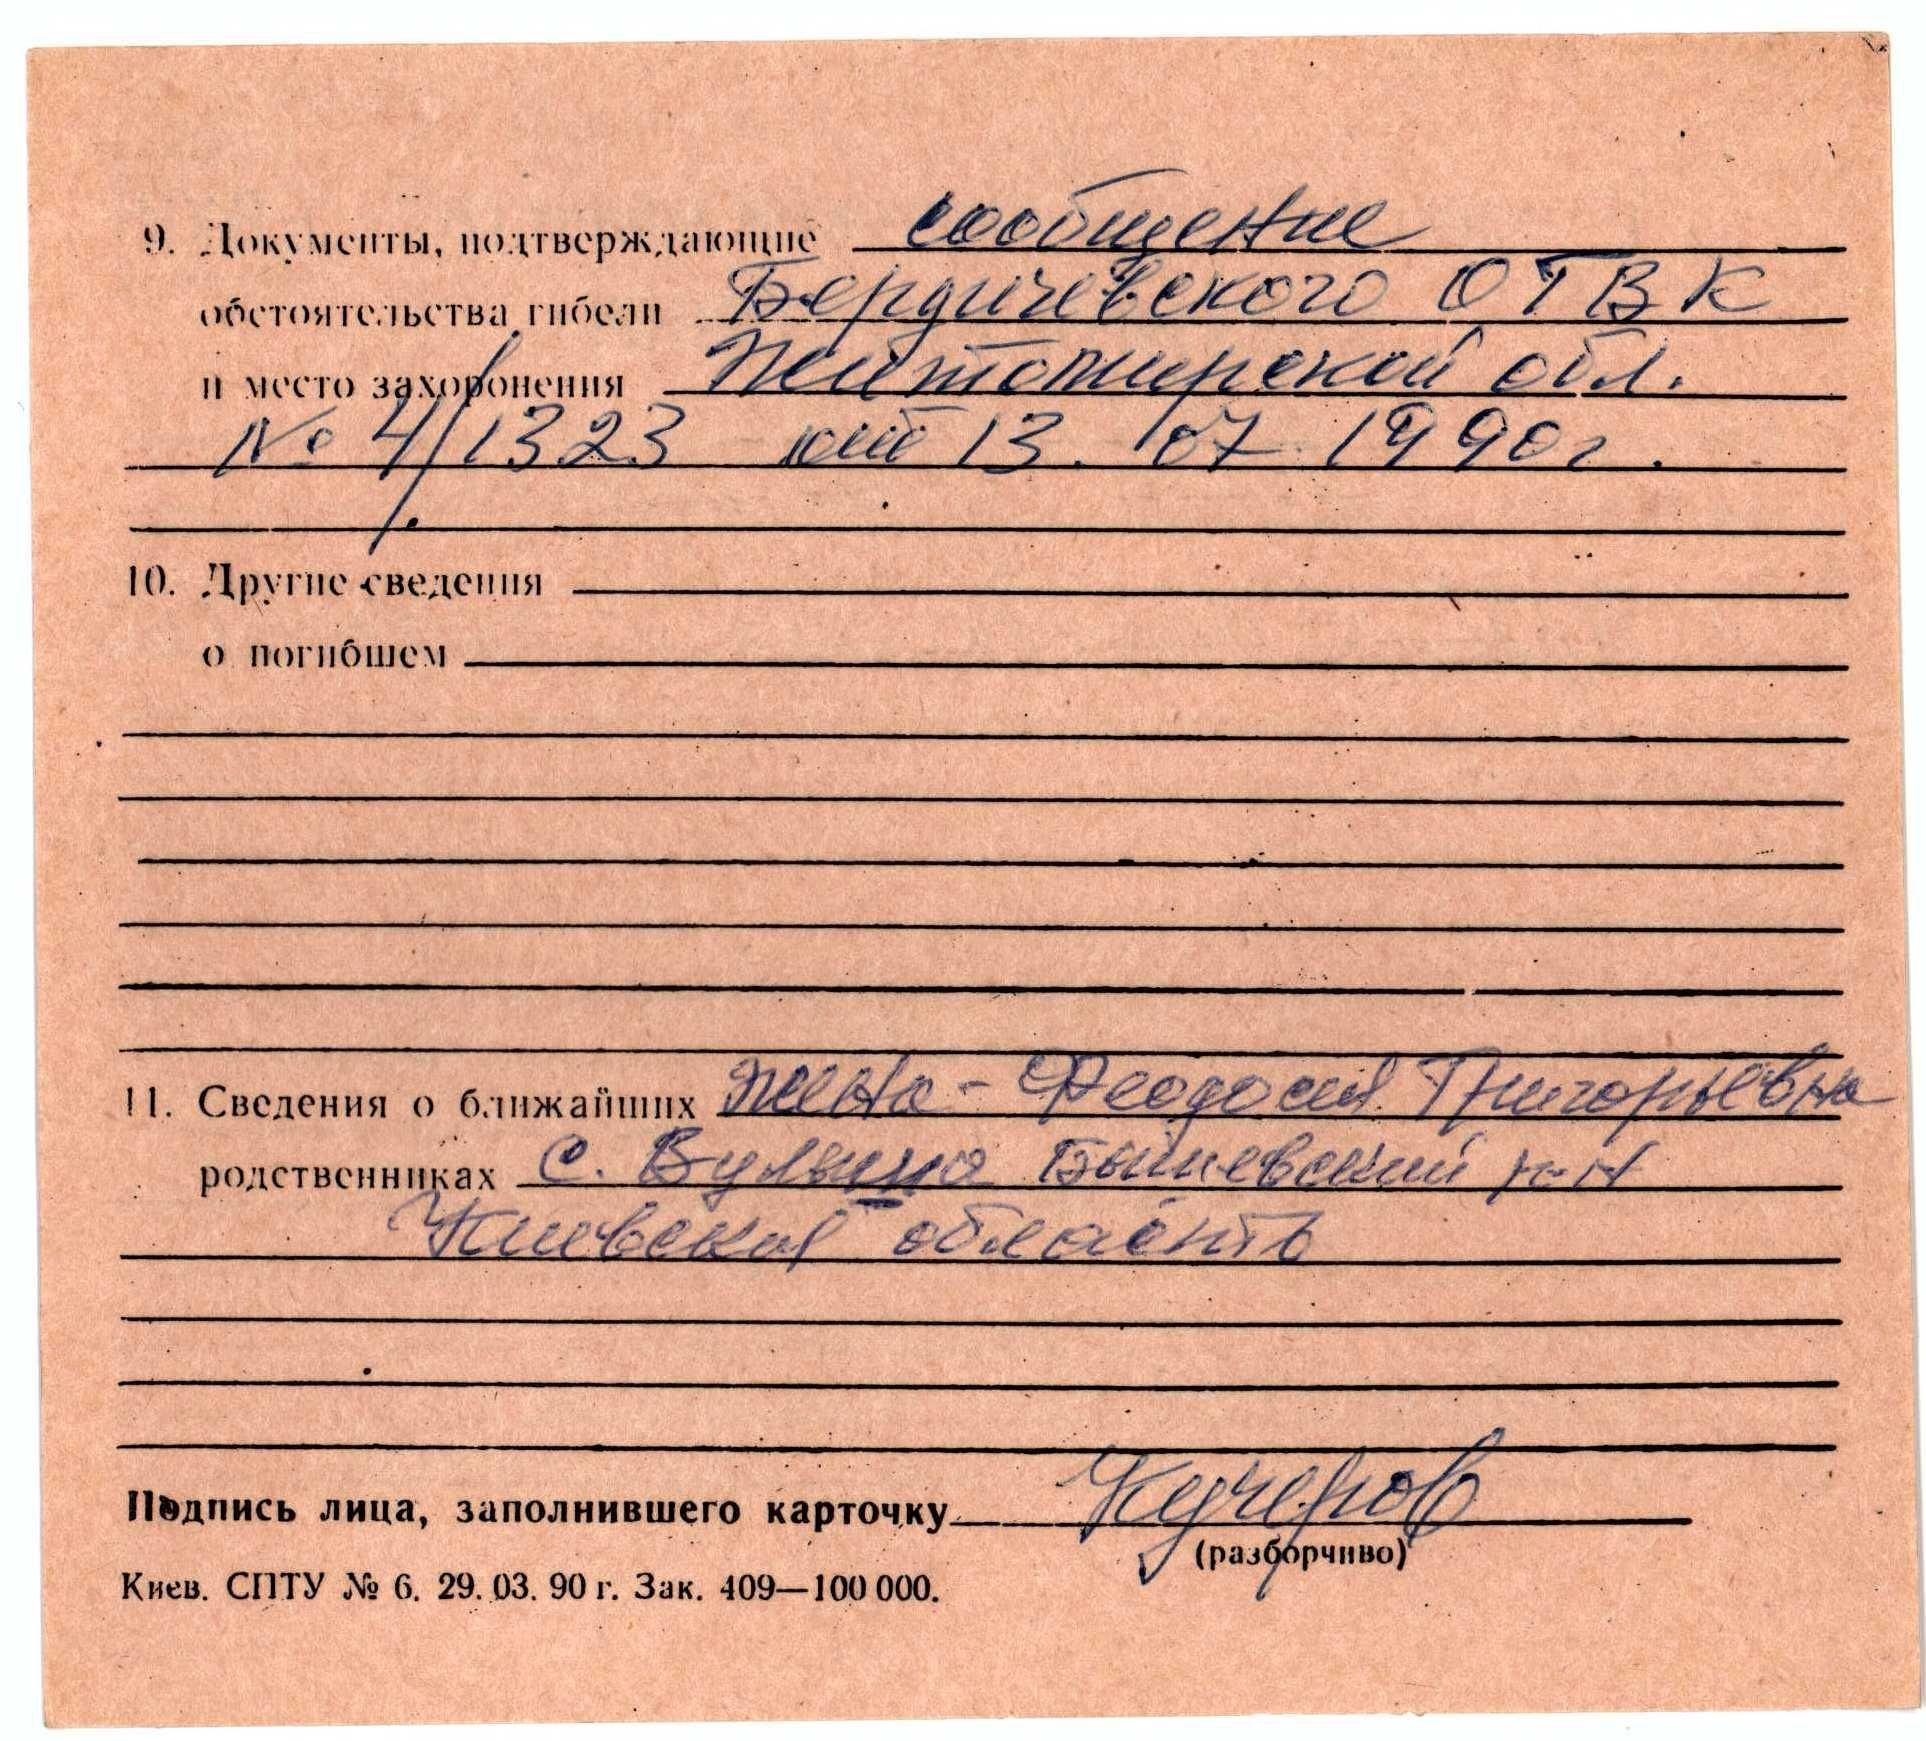 9. Документы, подтверждающие сообщение
обстоятельства гибели Бердичевского ОГВК
и место захоронения Житомирской обл.
№ 4/1323 от 13. 07 1990г.
10. Другие сведения
о погибшем
11. Сведения о ближайших жена - Феодосия Григорьевна
родственниках с. Бышевский р-н
Киевская область
Подпись лица, заполнившего карточку Кучеров
(разборчиво)
Киев. СПТУ № 6. 29. 03. 90 г. Зак. 409—100 000.